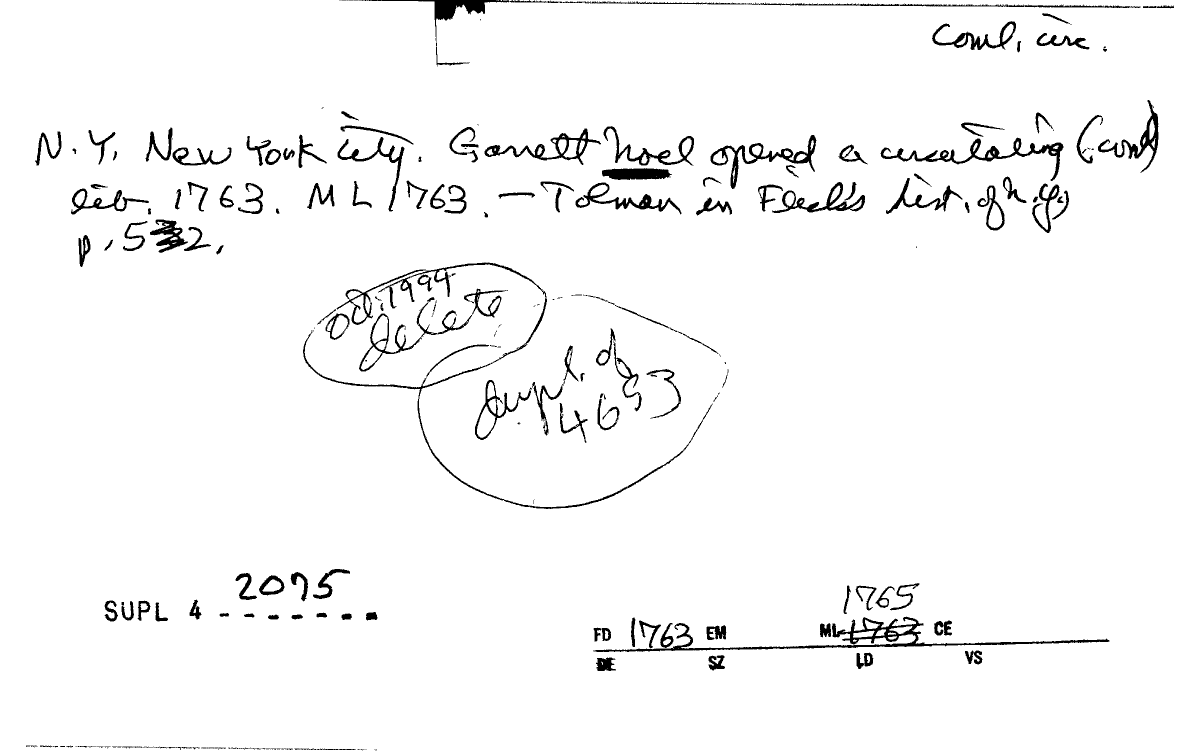 Coml. circ.
N.Y. New York City. Garrett Noel opened a circulating (coml)
lib. 1763. ML 1763. — Tolman in Flick's Hist. of N.Y.,
p. 52.
Oct. 1994
delete
dupl. of
14653
SUPL 4 2075
1765
FD 1763 EM ML 1763 CE
DE SZ LD VS